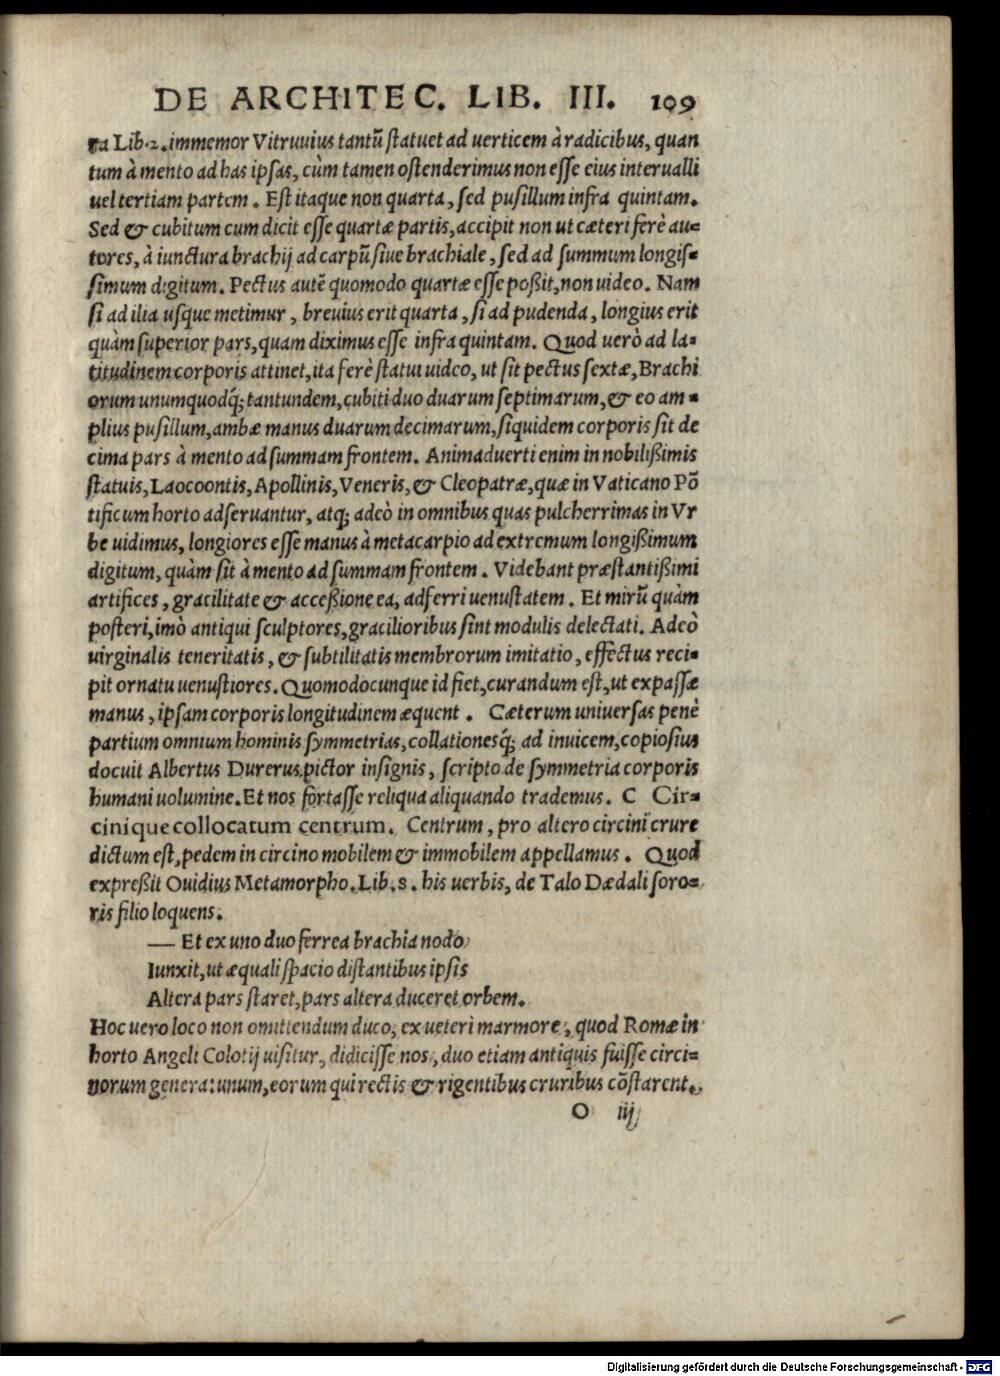 DE ARCHITEC. LIB. III. 109
ra Lib.2.immemor Vitruuius tantũ statuet ad uerticem à radicibus, quan
tum à mento ad has ipsas, cùm tamen ostenderimus non esse eius interualli
uel tertiam partem. Est itaque non quarta, sed pusillum infra quintam.
Sed & cubitum cum dicit esse quartæ partis, accipit non ut cæteri ferè au-
tores, à iunctura brachij ad carpũ siue brachiale, sed ad summum longis-
simum digitum. Pectus autẽ quomodo quartæ esse poßit, non uideo. Nam
si ad ilia usque metimur, breuius erit quarta, si ad pudenda, longius erit
quàm superior pars, quam diximus esse infra quintam. Quod uerò ad la-
titudinem corporis attinet, ita ferè statui uideo, ut sit pectus sextæ, Brachi
orum unumquodq́; tantundem, cubiti duo duarum septimarum, & eo am-
plius pusillum, ambæ manus duarum decimarum, siquidem corporis sit de
cima pars à mento ad summam frontem. Animaduerti enim in nobilißimis
statuis, Laocoontis, Apollinis, Veneris, & Cleopatræ, quæ in Vaticano Põ
tificum horto adseruantur, atq; adeò in omnibus quas pulcherrimas in Vr
be uidimus, longiores esse manus à metacarpio ad extremum longißimum
digitum, quàm sit à mento ad summam frontem. Videbant præstantißimi
artifices, gracilitate & acceßione ea, adferri uenustatem. Et mirũ quàm
posteri, imò antiqui sculptores, gracilioribus sint modulis delectati. Adeò
uirginalis teneritatis, & subtilitatis membrorum imitatio, effectus reci-
pit ornatu uenustiores. Quomodocunque id fiet, curandum est, ut expassæ
manus, ipsam corporis longitudinem æquent. Cæterum uniuersas penè
partium omnium hominis symmetrias, collationesq́; ad inuicem, copiosius
docuit Albertus Durerus pictor insignis, scripto de symmetria corporis
humani uolumine. Et nos fortasse reliqua aliquando trademus. C Cir-
cinique collocatum centrum. Centrum, pro altero circini crure
dictum est, pedem in circino mobilem & immobilem appellamus. Quod
expreßit Ouidius Metamorpho. Lib. 8. his uerbis, de Talo Dædali soro-
ris filio loquens.
— Et ex uno duo ferrea brachia nodo
Iunxit, ut æquali spacio distantibus ipsis
Altera pars staret, pars altera duceret orbem.
Hoc uero loco non omittendum duco, ex ueteri marmore, quod Romæ in
horto Angeli Colotij uisitur, didicisse nos, duo etiam antiquis fuisse circi-
norum genera: unum, eorum qui rectis & rigentibus cruribus cõstarent,
O iij
Digitalisierung gefördert durch die Deutsche Forschungsgemeinschaft - DFG